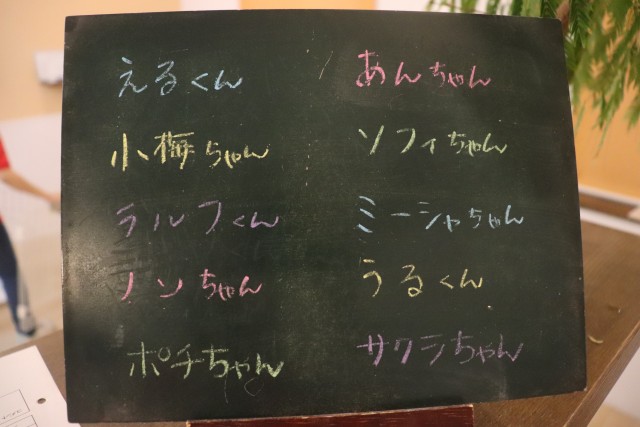 えるくん
小梅ちゃん
チルフくん
ノンちゃん
ポチちゃん
あんちゃん
ソフィちゃん
ミーシャちゃん
うるくん
サクラちゃん